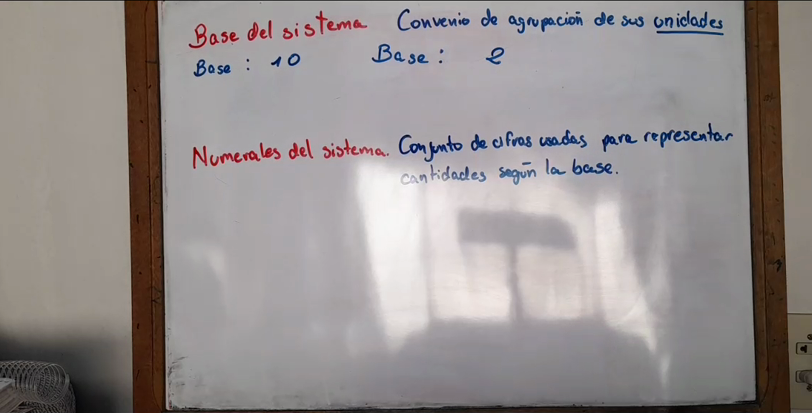 Base del sistema Convenio de agrupación de sus unidades
Base : 10 Base : 2
Numerales del sistema. Conjunto de cifras usadas para representar
cantidades según la base.